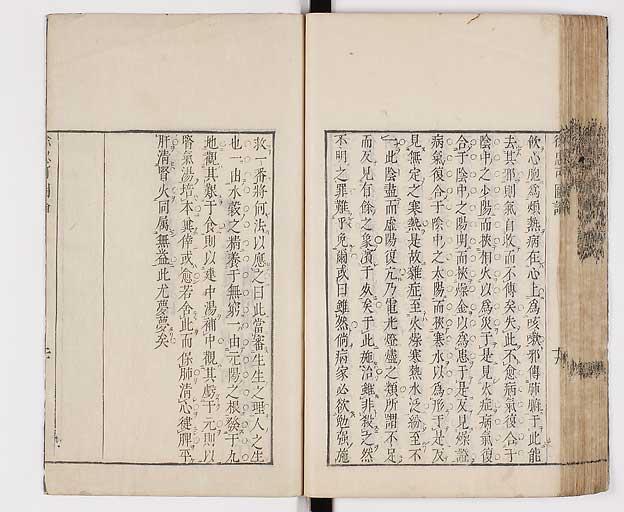 欬心胞爲煩熱病在心上爲咳嗽邪傳肺臓于此能
去其邪則氣自收而不傳矣失此不愈病氣復合于
陰中之少陽而挾相火以爲災于是見火症病氣復
合于陰中之陽明而挾燥金以爲患于是反見燥證
病氣復合于陰中之太陽而挾寒水以爲形于是反
見無定之寒熱是故雜症至火燥寒熱水泛紛至不
一此陰盡而虚陽復亢乃電光燈燼之類所謂不足
而反見有餘之象濱于死矣于此施治雖非殺之然
不明之罪難乎免爾或曰雖然倘病家必欲勉强施
救一番將何法以應之曰此當審生生之理人之生
也一由水穀之精養于無窮一由元陽之根發于九
地觀其艱于食則以建中湯補中觀其虧于元則以
腎氣湯培本冀倖或愈若舍此而保肺清心健脾平
肝清腎火同屬無益此尤夢夢矣